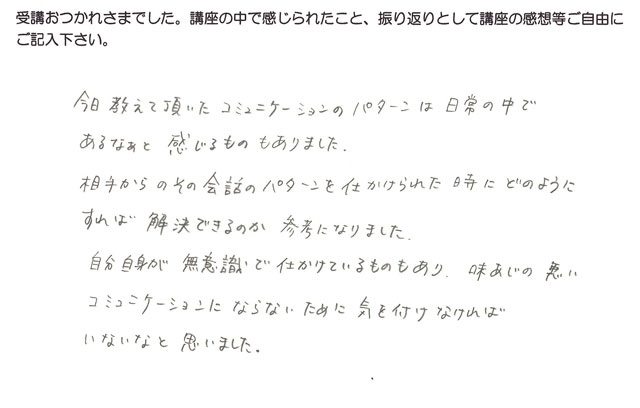 受講おつかれさまでした。講座の中で感じられたこと、振り返りとして講座の感想等ご自由に
ご記入下さい。
今日教えて頂いたコミュニケーションのパターンは日常の中で
あるなぁと感じるものもありました.
相手からのその会話のパターンを仕かけられた時にどのように
すれば解決できるのか参考になりました.
自分自身が無意識で仕かけているものもあり、味あじの悪い
コミュニケーションにならないために気を付けなければ
いないなと思いました。